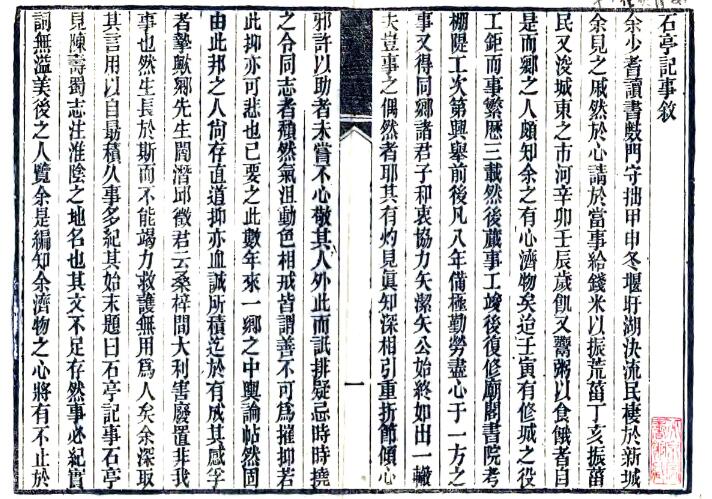 石亭記事敘
余少耆讀書數門守拙甲申冬堰盱湖決流民棲於新城
余見之戚然於心請於當事給錢米以振荒菑丁亥振菑
民又浚城東之市河辛卯壬辰歲飢又鬻粥以食餓者自
是而鄉之人頗知余之有心濟物矣迨壬寅有修城之役
工鉅而事繁歷三載然後蕆事工竣後復修廟閣書院考
棚隄工次第興舉前後凡八年備極勤勞盡心于一方之
事又得同鄉諸君子和衷協力矢潔矢公始終如出一轍
夫豈事之偶然者耶其有灼見眞知深相引重折節傾心
一
邪許以助者未嘗不心敬其人外此而詆排疑忌時時撓
之令同志者頹然氣沮動色相戒皆謂善不可爲摧抑若
此抑亦可悲也已要之此數年來一鄉之中輿論帖然固
由此邦之人尙存直道抑亦血誠所積迄於有成其感孚
者摯歟鄉先生閻潛邱徵君云桑梓間大利害廢置非我
事也然生長於斯而不能竭力救護無用爲人矣余深取
其言用以自勗積久事多紀其始末題曰石亭記事石亭
見陳壽蜀志注淮陰之地名也其文不足存然事必紀實
詞無溢美後之人覽余是編知余濟物之心將有不止於